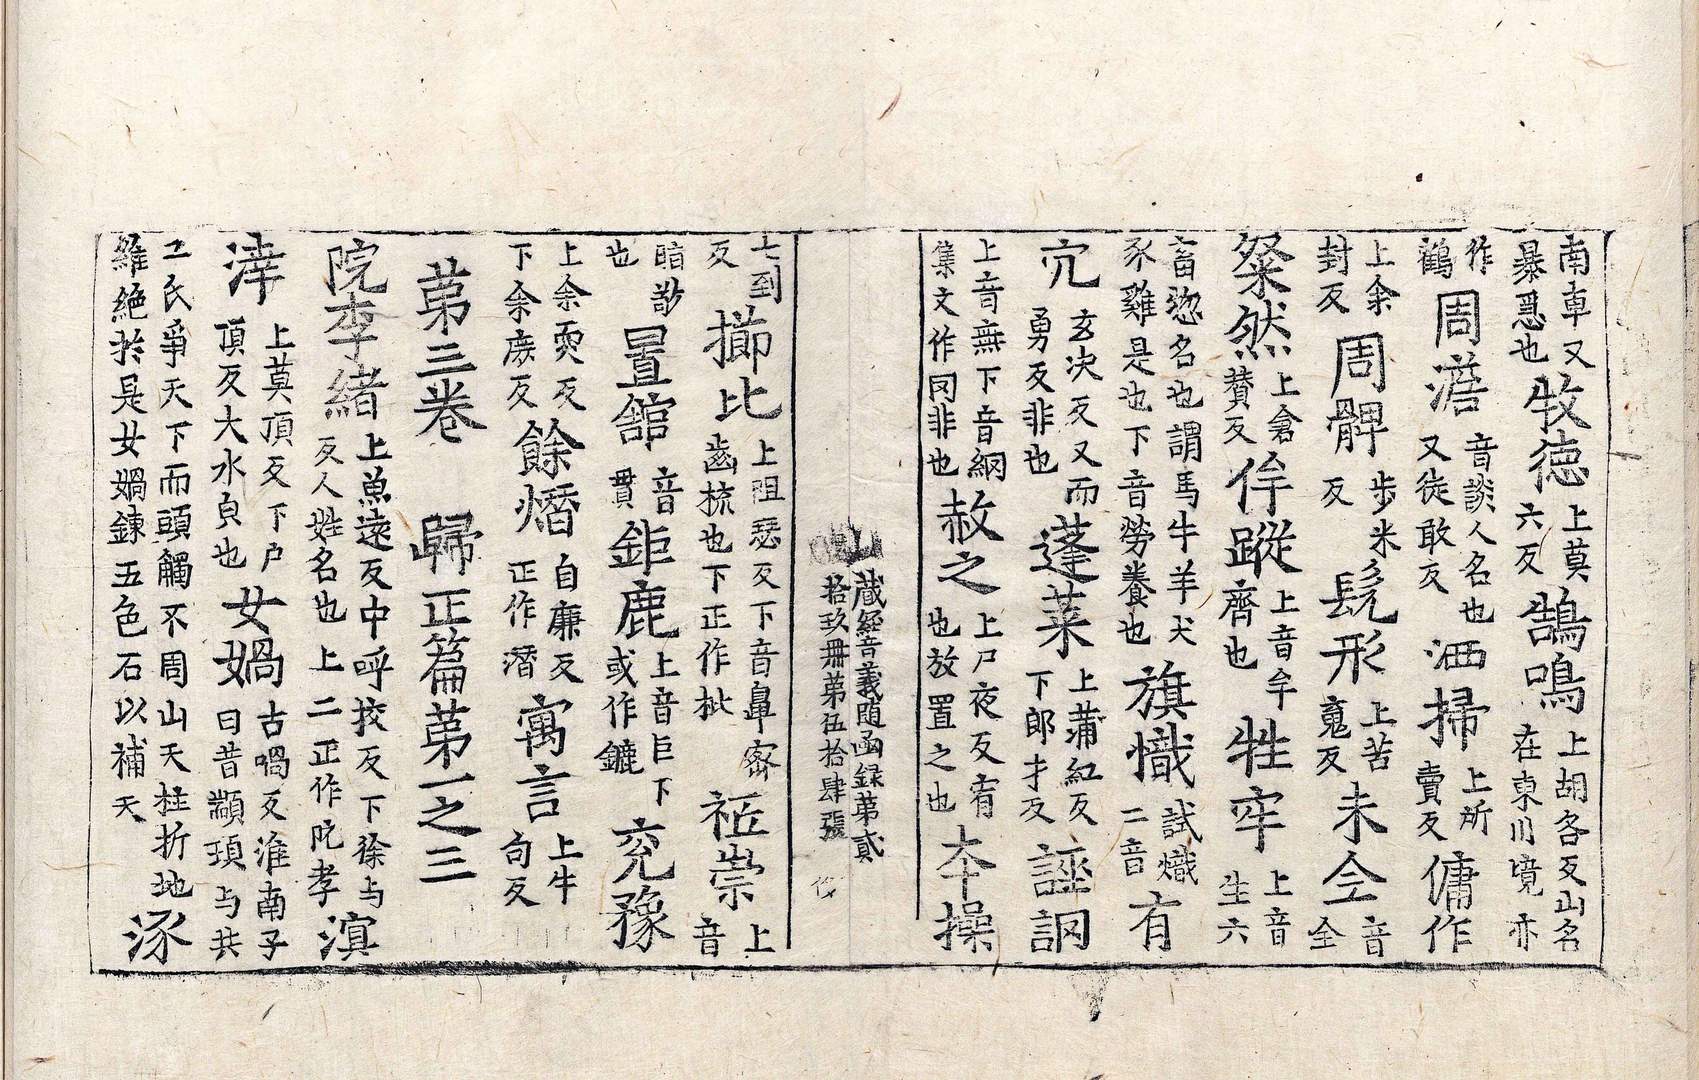 南卓又暴㤙也牧德上莫六反鵠鳴上胡各反山名在東川境亦
作鶴周澹音談人名也又徒敢反洒掃上所賣反傭作
上余封反周髀步米反髡形上苦䰟反未仝音全
粲然上倉賛反侔蹤上音牟齊也牲牢上音生六
畜惣名也謂馬牛羊犬豕雞是也下音勞養也旗幟試熾二音有
穴玄决反又而勇反非也蓬萊上蒲紅反下郎才反誣詷
上音無下音網集文作同非也赦之上尸夜反宥也放置之也夲操
藏經音義随函録第貳
拾玖冊第伍拾肆張
七到反擳比上阻瑟反下音鼻密齒梳也下正作枇祍崇上音
暗㪣也置舘音貫鉅鹿上音巨下或作鏕兖豫
上余耎反下余庶反餘熸自廉反正作潛寓言上牛句反
第三卷 歸正篇第一之三
院李緒上魚遠反中呼挍反下徐与反人姓名也上二正作阮孝滇
涬上莫頂反下户頂反大水皃也女媧古喎反淮南子曰昔顓頊与共
工氏爭天下而頭觸不周山天柱折地維絶於是女媧鍊五色石以補天涿